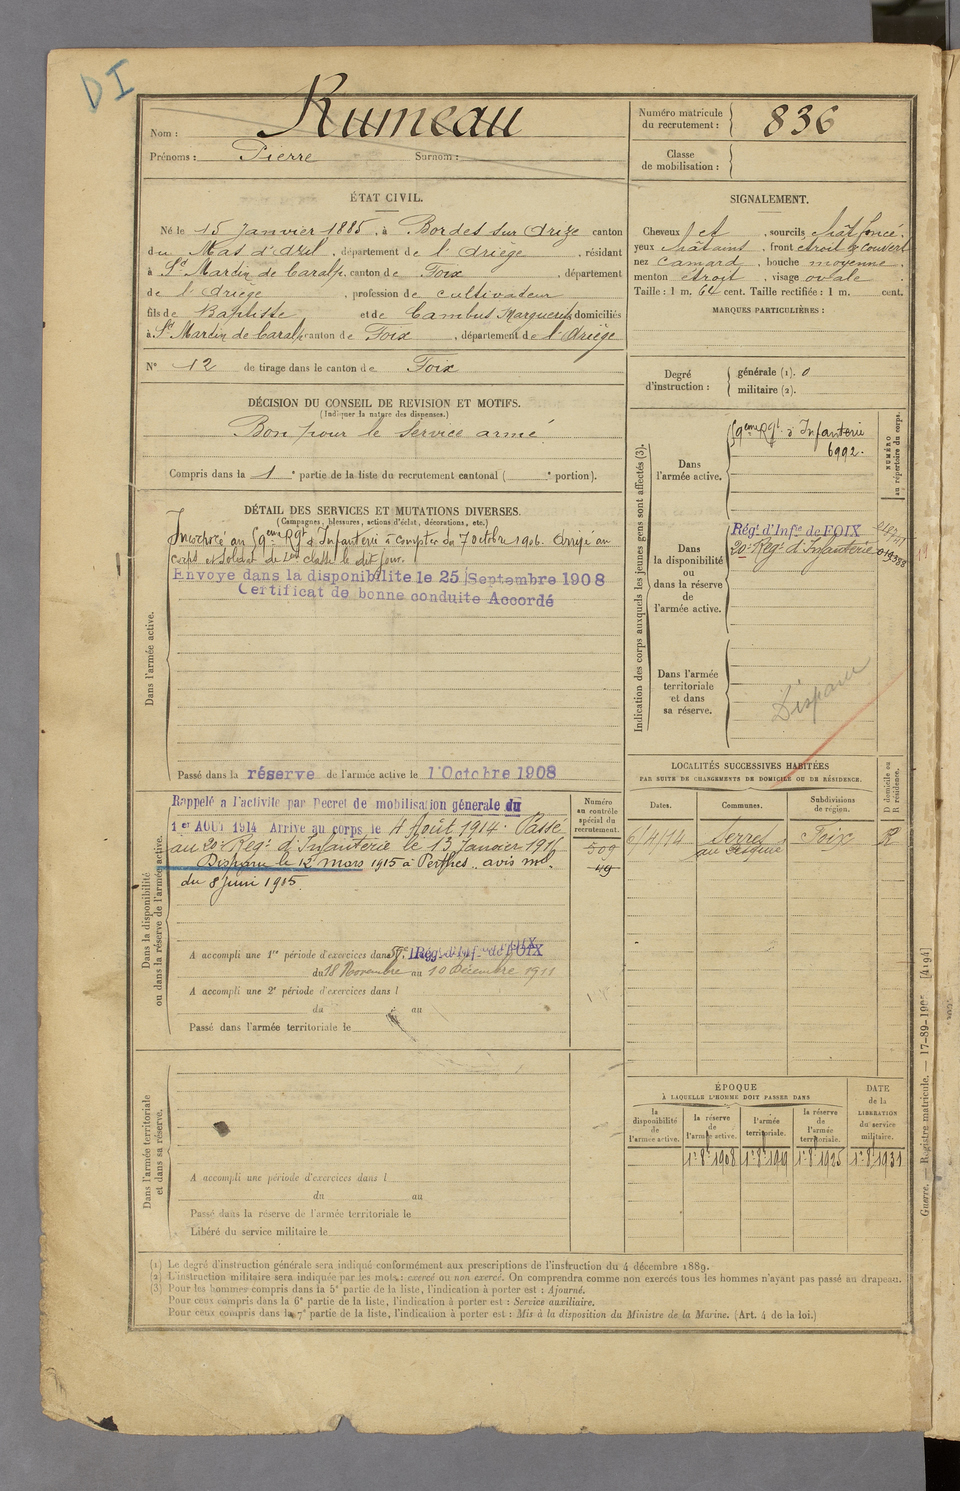 DI
Nom : Rumeau
Prénoms : Pierre Surnom :
Numéro matricule du recrutement : 836
Classe de mobilisation :
ÉTAT CIVIL.
Né le 15 Janvier 1885, à Bordes sur Arize canton
du Mas d'Azil, département de l'Ariège, résidant
à St Martin de Caralp, canton de Foix, département
de l'Ariège, profession de cultivateur
fils de Baptiste et de Cambus Marguerite, domiciliés
à St Martin de Caralp canton de Foix, département de l'Ariège
N° 12 de tirage dans le canton de Foix
SIGNALEMENT.
Cheveux et, sourcils chât foncé.
yeux châtains, front étroit & couvert
nez camard, bouche moyenne,
menton étroit, visage ovale
Taille : 1 m. 64 cent. Taille rectifiée : 1 m. cent.
MARQUES PARTICULIÈRES :
Degré d'instruction :
générale (1). 0
militaire (2).
DÉCISION DU CONSEIL DE REVISION ET MOTIFS.
(Indiquer la nature des dispenses.)
Bon pour le service armé.
Compris dans la 1e partie de la liste du recrutement cantonal ( e portion).
DÉTAIL DES SERVICES ET MUTATIONS DIVERSES.
(Campagnes, blessures, actions d'éclat, décorations, etc.)
Dans l'armée active.
Incorporé au 59eme Rgt d'Infanterie à compter du 7 octobre 1906. Arrivé au
corps et soldat de 2eme classe le dit jour.
Envoyé dans la disponibilité le 25 Septembre 1908
Certificat de bonne conduite Accordé
Passé dans la réserve de l'armée active le 1 Octobre 1908
Indication des corps auxquels les jeunes gens sont affectés (3).
NUMÉRO au répertoire du corps.
Dans l'armée active.
59eme Rgt d'Infanterie
6992.
Dans la disponibilité ou dans la réserve de l'armée active.
Régt d'Infie de FOIX
20e Régt d'Infanterie 019388
Dans l'armée territoriale et dans sa réserve.
Disparu
LOCALITÉS SUCCESSIVES HABITÉES
PAR SUITE DE CHANGEMENTS DE DOMICILE OU DE RÉSIDENCE.
D domicile ou R résidence.
Dates. Communes. Subdivisions de région.
6/4/14 Serres Foix R
Dans la disponibilité ou dans la réserve de l'armée active.
Numéro au contrôle spécial du recrutement.
509
49
Rappelé à l'activité par Décret de mobilisation générale du
1er AOUT 1914 Arrivé au corps le 4 Août 1914. Passé
au 20e Régt d'Infanterie le 13 Janvier 1915
Disparu le 12 mars 1915 à Perthes. avis mel
du 8 Juin 1915.
A accompli une 1re période d'exercices dans Régt d'Inf. de FOIX
du 18 Novembre au 10 Décembre 1911
A accompli une 2e période d'exercices dans l
du au
Passé dans l'armée territoriale le
Dans l'armée territoriale et dans sa réserve.
A accompli une période d'exercices dans l
du au
Passé dans la réserve de l'armée territoriale le
Libéré du service militaire le
ÉPOQUE
À LAQUELLE L'HOMME DOIT PASSER DANS
DATE de la LIBÉRATION du service militaire.
la disponibilité de l'armée active.
la réserve de l'armée active.
l'armée territoriale.
la réserve de l'armée territoriale.
1r 8e 1908 1r 8e 1919 1r 8e 1925 1r 8e 1931
(1) Le degré d'instruction générale sera indiqué conformément aux prescriptions de l'instruction du 4 décembre 1889.
(2) L'instruction militaire sera indiquée par les mots : exercé ou non exercé. On comprendra comme non exercés tous les hommes n'ayant pas passé au drapeau.
(3) Pour les hommes compris dans la 5e partie de la liste, l'indication à porter est : Ajourné.
Pour ceux compris dans la 6e partie de la liste, l'indication à porter est : Service auxiliaire.
Pour ceux compris dans la 7e partie de la liste, l'indication à porter est : Mis à la disposition du Ministre de la Marine. (Art. 4 de la loi.)
Guerre. — Registre matricule. — 17-89-1905 [4194]